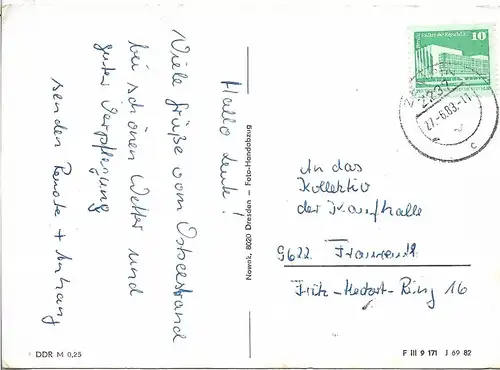 Hallo Leute!
Viele Grüße vom Ostseestrand
bei schönen Wetter und
guter Verpflegung
senden Renate + Anhang
Nowak, 8020 Dresden – Foto-Handabzug
10
2237
27.-6.83.-11
c
An das
Kollektiv
der Kaufhalle
9622
Fritz-Heckert-Ring 16
DDR M 0,25
F III 9 171 J 69 82